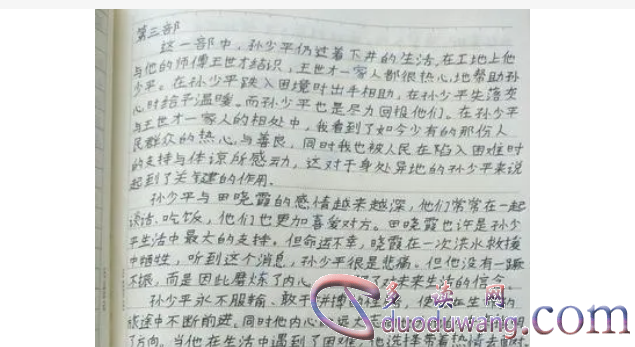 第三部
这一部中，孙少平仍过着下井的生活，在工地上他
与他的师傅王世才结识，王世才一家人都很热心地帮助孙
少平。在孙少平跌入困境时出手相助，在孙少平失落变
心时给予温暖。而孙少平也是尽力回报他们。在孙少平
与王世才一家人的相处中，我看到了如今少有的那份人
民群众的热心与善良，同时我也被人民在陷入困难时
的支持与体谅所感动，这对于身处异地的孙少平来说
起到了关键的作用。
孙少平与田晓霞的感情越来越深，他们常常在一起
谈话、吃饭，他们也更加喜爱对方。田晓霞也许是孙少
平生活中最大的支持。但命运不幸，晓霞在一次洪水救援
中牺牲，听到这个消息，孙少平很是悲痛。但他没有一蹶
不振，而是因此磨炼了内心 了对未来生活的信念
孙少平永不服输、敢于拼博的 使 在生 的
旅途中不断前进。同时他内心 远大
了方向。当他在生活中遇到了困难，他选择带着热情去面对
多读网
duoduwang.com